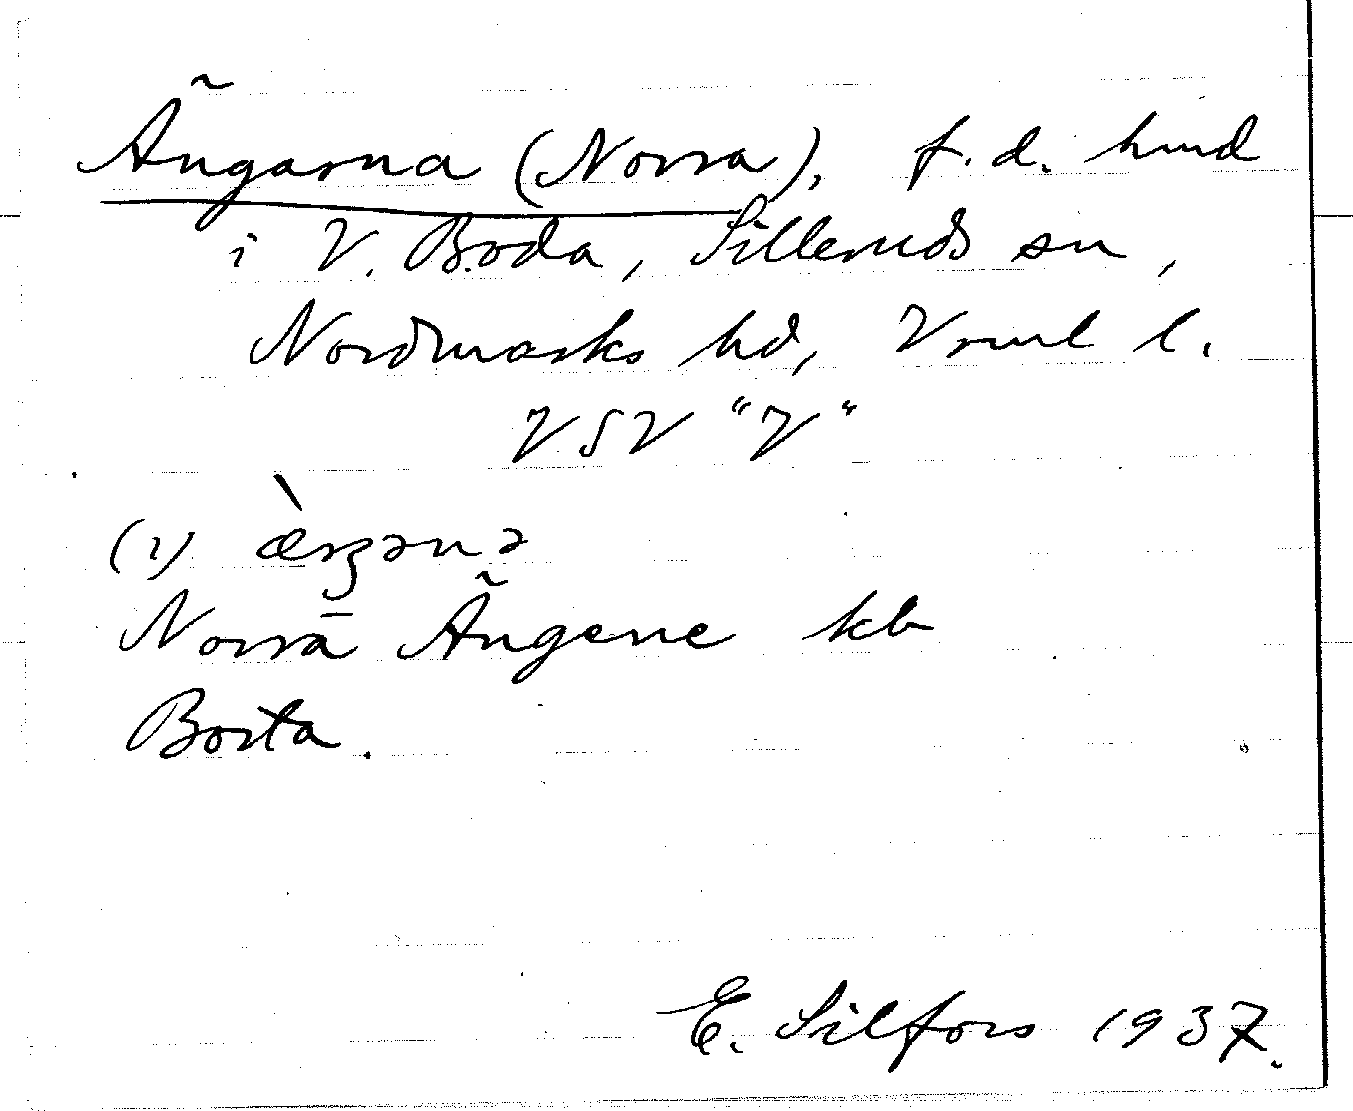 Ängarna (Norra), f.d. hmd
i V. Boda, Silleruds sn,
Nordmarks hd, Vrml l.
VSV "V"
(1) æ̀ŋənə
Norrā Ängene kb
Borta.
E. Silfors 1937.